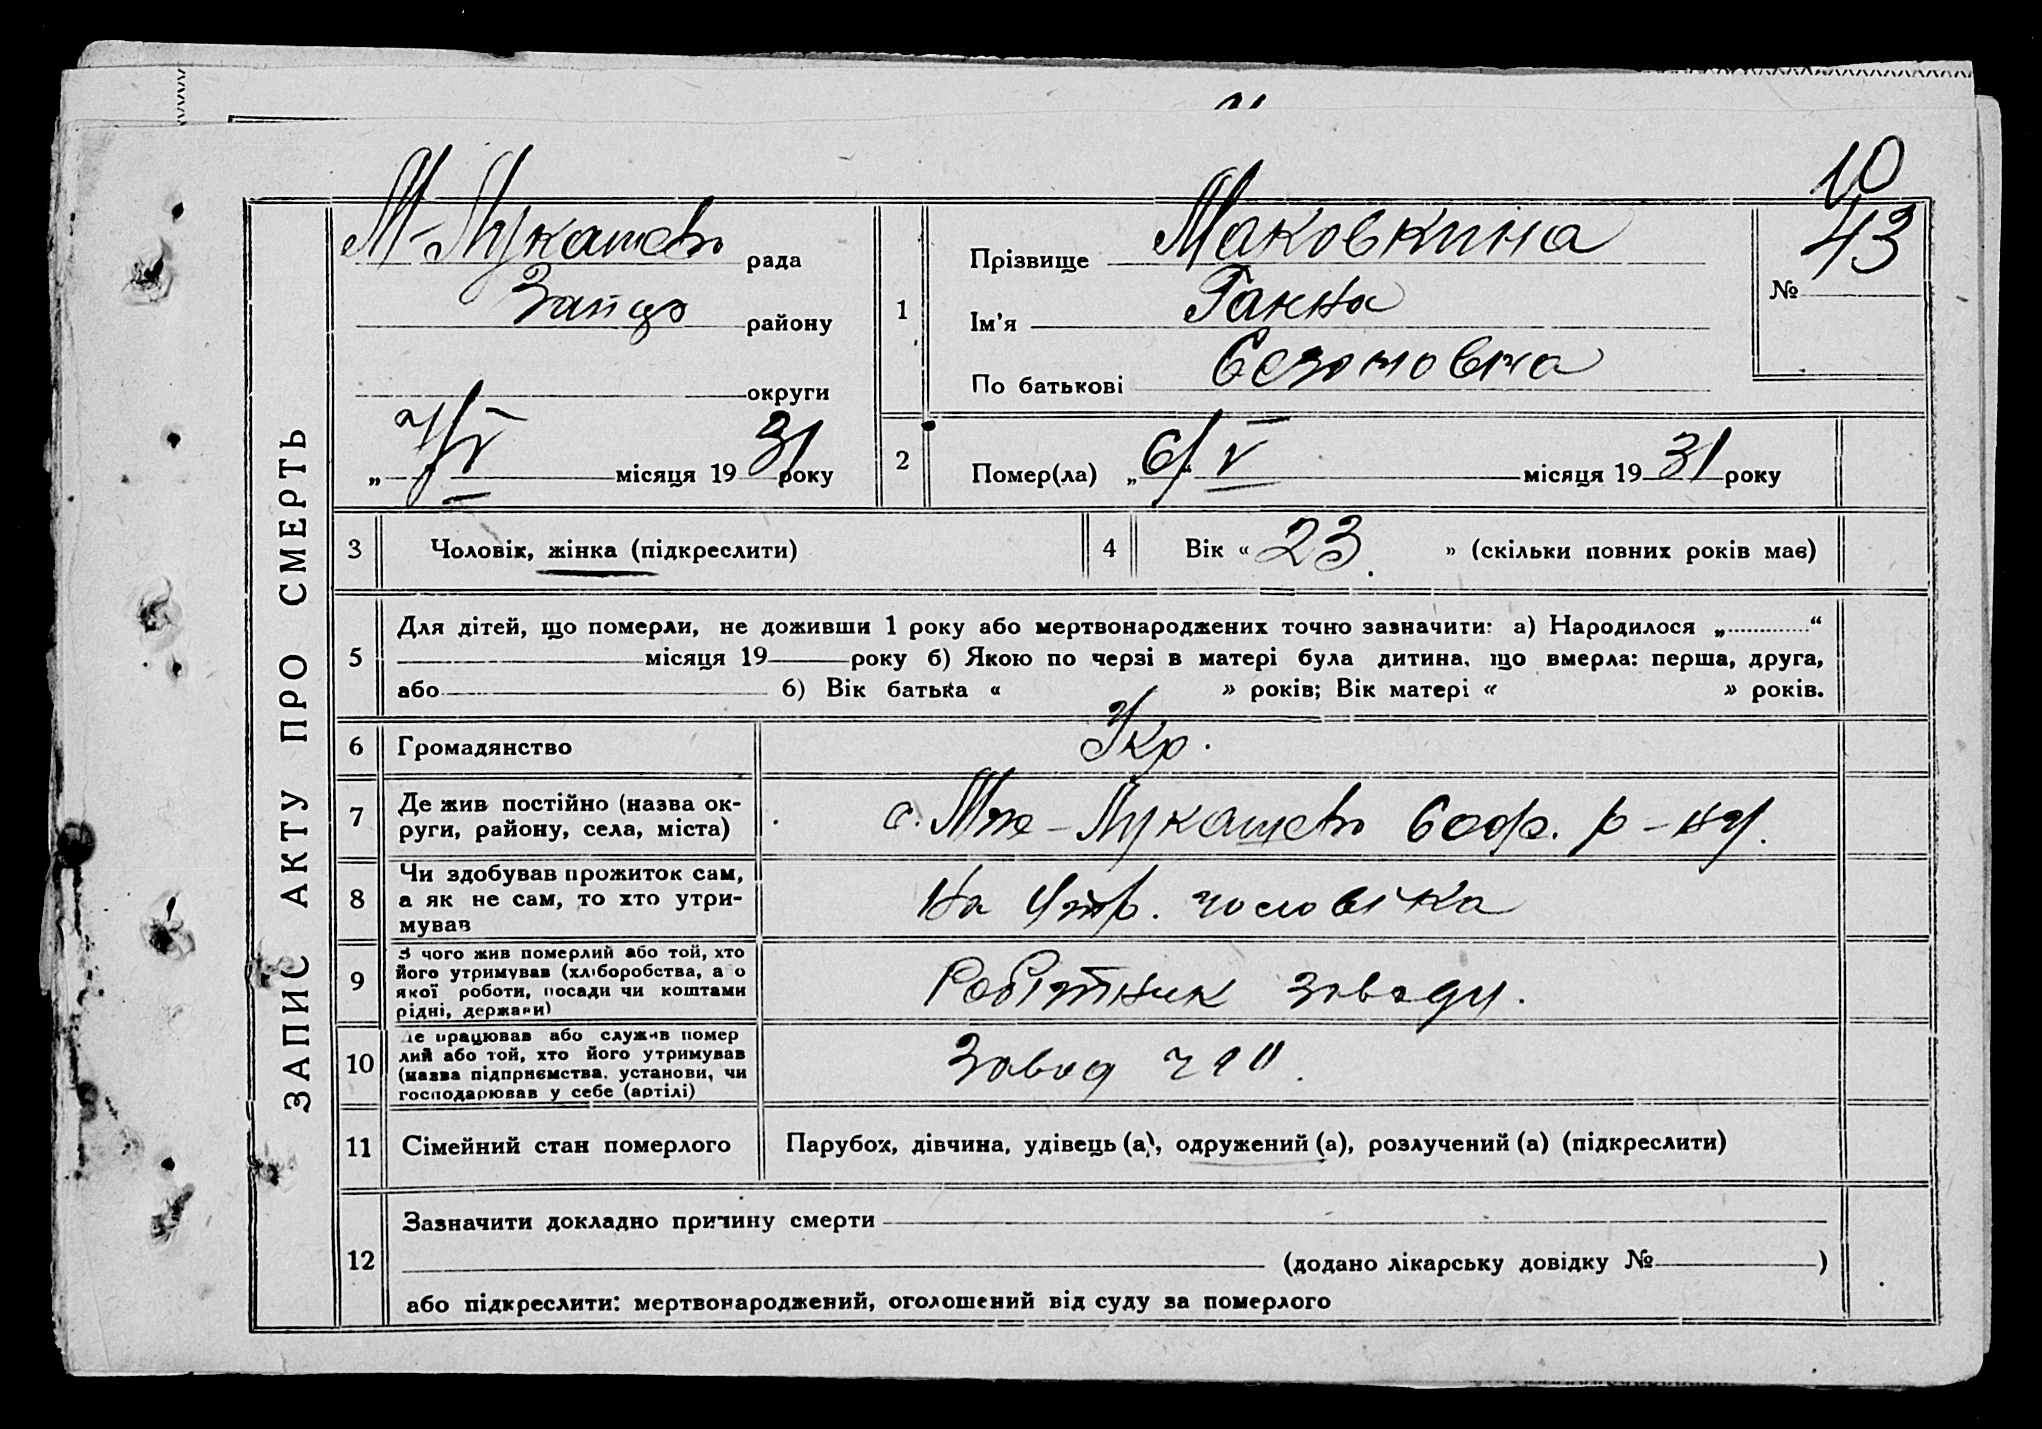 10
43
№
ЗАПИС АКТУ ПРО СМЕРТЬ
М-Лукашево рада
району
округи
„ 7/V місяця 19 31 року
1
Прізвище Маковкина
Ім'я Ганна
По батькові
2
Помер(ла) „ 6/V місяця 19 31 року
3
Чоловік, жінка (підкреслити)
4
Вік « 23. » (скільки повних років має)
5
Для дітей, що померли, не доживши 1 року або мертвонароджених точно зазначити: а) Народилося „ “
місяця 19 року б) Якою по черзі в матері була дитина, що вмерла: перша, друга,
або 6) Вік батька « » років; Вік матері « » років.
6
Громадянство
Укр.
7
Де жив постійно (назва ок-
руги, району, села, міста)
с. Лукашево р-ну.
8
Чи здобував прожиток сам,
а як не сам, то хто утри-
мував
На Утр. чоловіка
9
З чого жив померлий або той, хто
його утримував (хліборобства, а о
якої роботи, посади чи коштами
рідні, держави)
Робітник заводу.
10
Де працював або служив помер
лий або той, хто його утримував
(назва підприємства, установи, чи
господарював у себе (артілі)
Завод
11
Сімейний стан померлого
Парубок, дівчина, удівець (а), одружений (а), розлучений (а) (підкреслити)
12
Зазначити докладно причину смерти
(додано лікарську довідку № )
або підкреслити: мертвонароджений, оголошений від суду за померлого